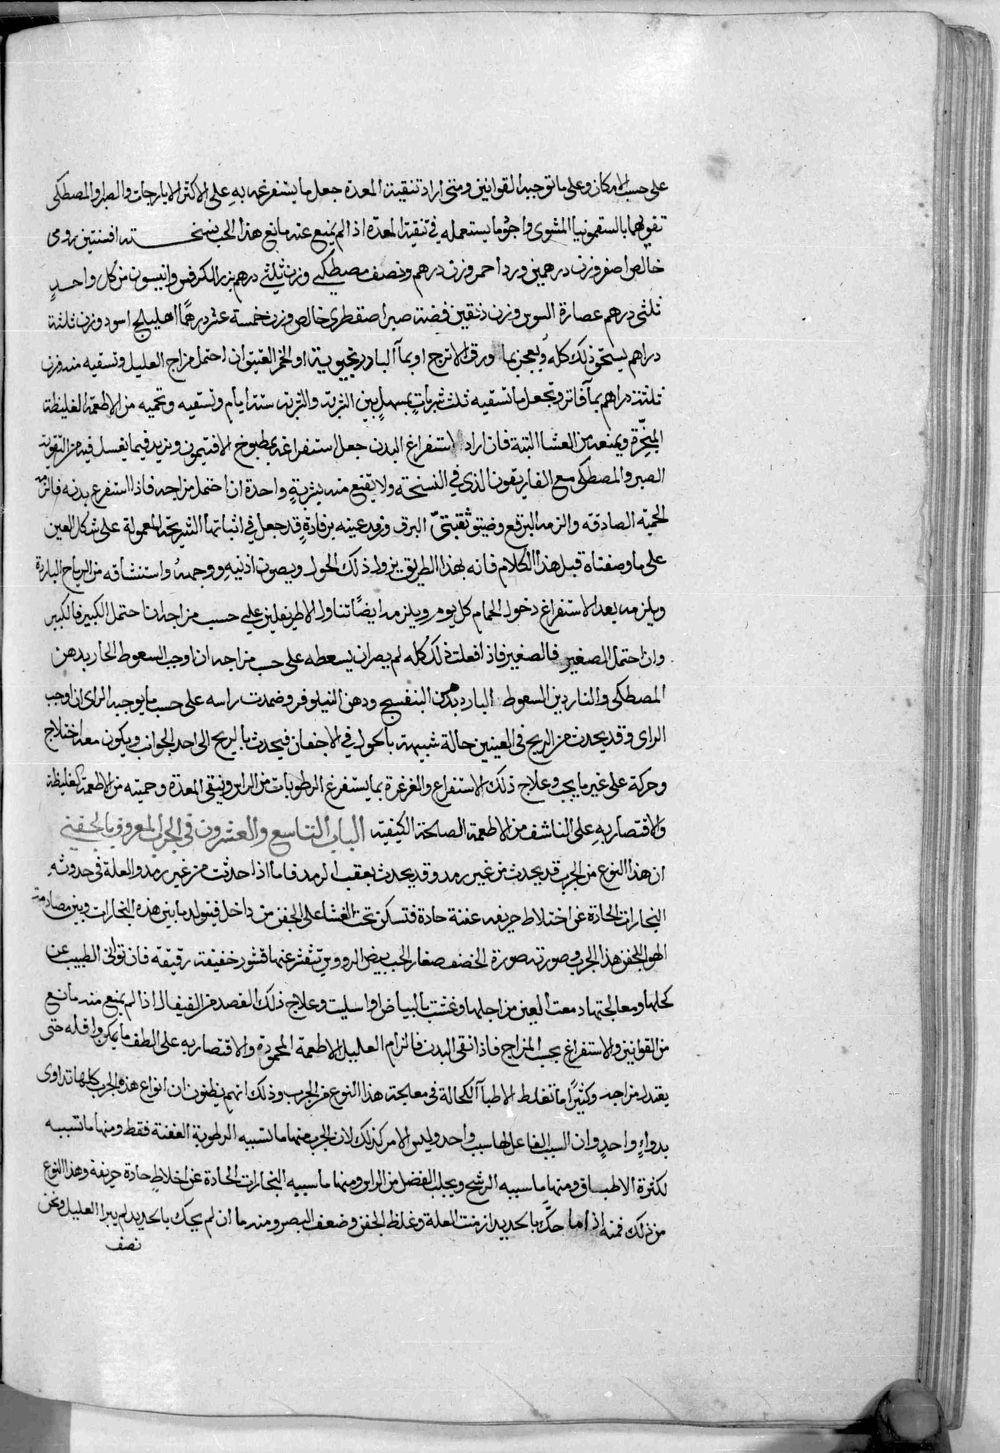 على حسب الامكان وعلى ما توجبه القوانين ومتى اراد تنقية المعدة جعل ما يستفرغه به على الاكثر الايارجات والصبر والمصطكى
تقويها بالسقمونيا المشوى واجود ما يستعمله في تنقية المعدة اذا لم يمنع عنه مانع هذا الحب نسخته افسنتين رومى
خالص اصفر وزن درهمين ورد احمر وزن درهم ونصف مصطكى وزن ثلثي درهم بزر الكرفس وانيسون من كل واحد
ثلثى درهم عصارة السوس وزن دنقين فضة صبر اصقطرى خالص وزن خمسة عشر درهما اهليلج اسود وزن ثلثة
دراهم يسحق ذلك كله ويعجن بما ورق الاترج او بمآ الباذرنجبوية او الخمر العتيق ان احتمل مزاج العليل وتسقيه منه وزن
ثلثة دراهم بمآ فاتر وتجعل ما تسقيه ثلث شربات يسهل بين الشربة والشربة ستة ايام وتسقيه وتحميه من الاطعمة الغليظة
المبخرة ويمنعه من العشا البتة فان اراد استفراغ البدن جعل استفراغه بمطبوخ الافتيمون ويزيد فيما يغسل فيه من التقوية
الصبر والمصطكى مع الغاريقون الذي في النسخة ولا يقنع منه بشربة واحدة ان احتمل مزاجه فاذا استفرغ بدنه فالزمه
الحمية الصادقة والزمه البرقع وضيق ثقبتي البرقع ورفد عينيه برفادة قد جعل في اثباتها الشريحة المعمولة على شكل العين
على ما وصفناه قبل هذا الكلام فانه بهذا الطريق يزول ذلك الحول ويصون اذنيه ووجهه واستنشاقه من الرياح الباردة
ويلزمه بعد الاستفراغ دخول الحمام كل يوم ويلزمه ايضا تناول الاطريفلين على حسب مزاجه ان احتمل الكبير فالكبير
وان احتمل الصغير فالصغير فاذا فعلت ذلك كله لم يضر ان يسعطه على حسب مزاجه ان اوجب السعوط الحار بدهن
المصطكى والناردين السعوط البارد بدهن البنفسج ودهن النيلوفر وضمدت راسه على حسب ما يوجبه الراى ان اوجب
الراى وقد يحدث من الريح في العينين حالة شبيهة بالحول في الاجفان فيحدث بالريح الى احد الجوانب ويكون معه اختلاج
وحركة على غير ما يجب وعلاج ذلك الاستفراغ والغرغرة بما يستفرغ الرطوبات من الراس وتنقي المعدة وحميته من الاطعمة الغليظة
والاقتصار به على الناشف من الاطعمة الصالحة الكيفية الباب التاسع والعشرون في الجرب المعروف بالجفني
ان هذا النوع من الجرب قد يحدث من غير رمد وقد يحدث بعقب الرمد فاما اذا حدثت من غير رمد والعلة في حدوثه
البخارات الحادة عن اختلاط حريفة عفنة حادة فتسكن تحت الغشا على الجفن من داخل فيتولد ما بين هذه البخارات وبين مصادمة
الهوا للجفن هذا الجرب وصورته صورة الخصف صغار الحب بيض الرووس تنقشر عنها قشور خفيفة رقيقة فان توانى الطبيب عن
كحلها ومعالجتها دمعت العين من اجلها وغشت بالبياض او اسبلت وعلاج ذلك الفصد من القيفال اذا لم يمنع منه مانع
من القوانين والاستفراغ بحسب المزاج فاذا نقى البدن فالزام العليل الاطعمة المحمودة والاقتصار به على الطف ما يمكن واقله حتى
يعتدل مزاجه وكثيرا ما تغلط الاطبآ الكحالة في معالجة هذا النوع من الجرب وذلك انهم يظنون ان انواع هذه الجرب كلها تداوى
بدواء واحد وان السبب الفاعل لها سبب واحد وليس الامر كذلك لان الجرب منها ما تسببه الرطوبة العفنة فقط ومنها ما تسببه
لكثرة الاطباق ومنها ما سببه الرشح وجلب الفضل من الراس ومنها ما سببه البخارات الحادة عن اخلاط حادة حريفة وهذا النوع
من ذلك فمنه اذا ما حك بالحديد ازمنت العلة وغلظ الجفن وضعف البصر ومنه ما ان لم يحك بالحديد لم يبرا العليل ونحن
نصف